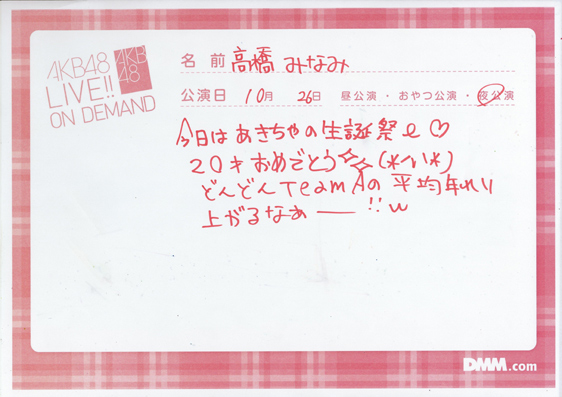 AKB48
LIVE!!
ON DEMAND
AKB
48
名前 高橋みなみ
公演日 10月 26日 昼公演・おやつ公演・夜公演
今日はあきちゃの生誕祭e♡
20才おめでとう✧✧(*へ)(*)
どんどんTeamAの平均年れい
上がるなぁ——!!w
DMM.com